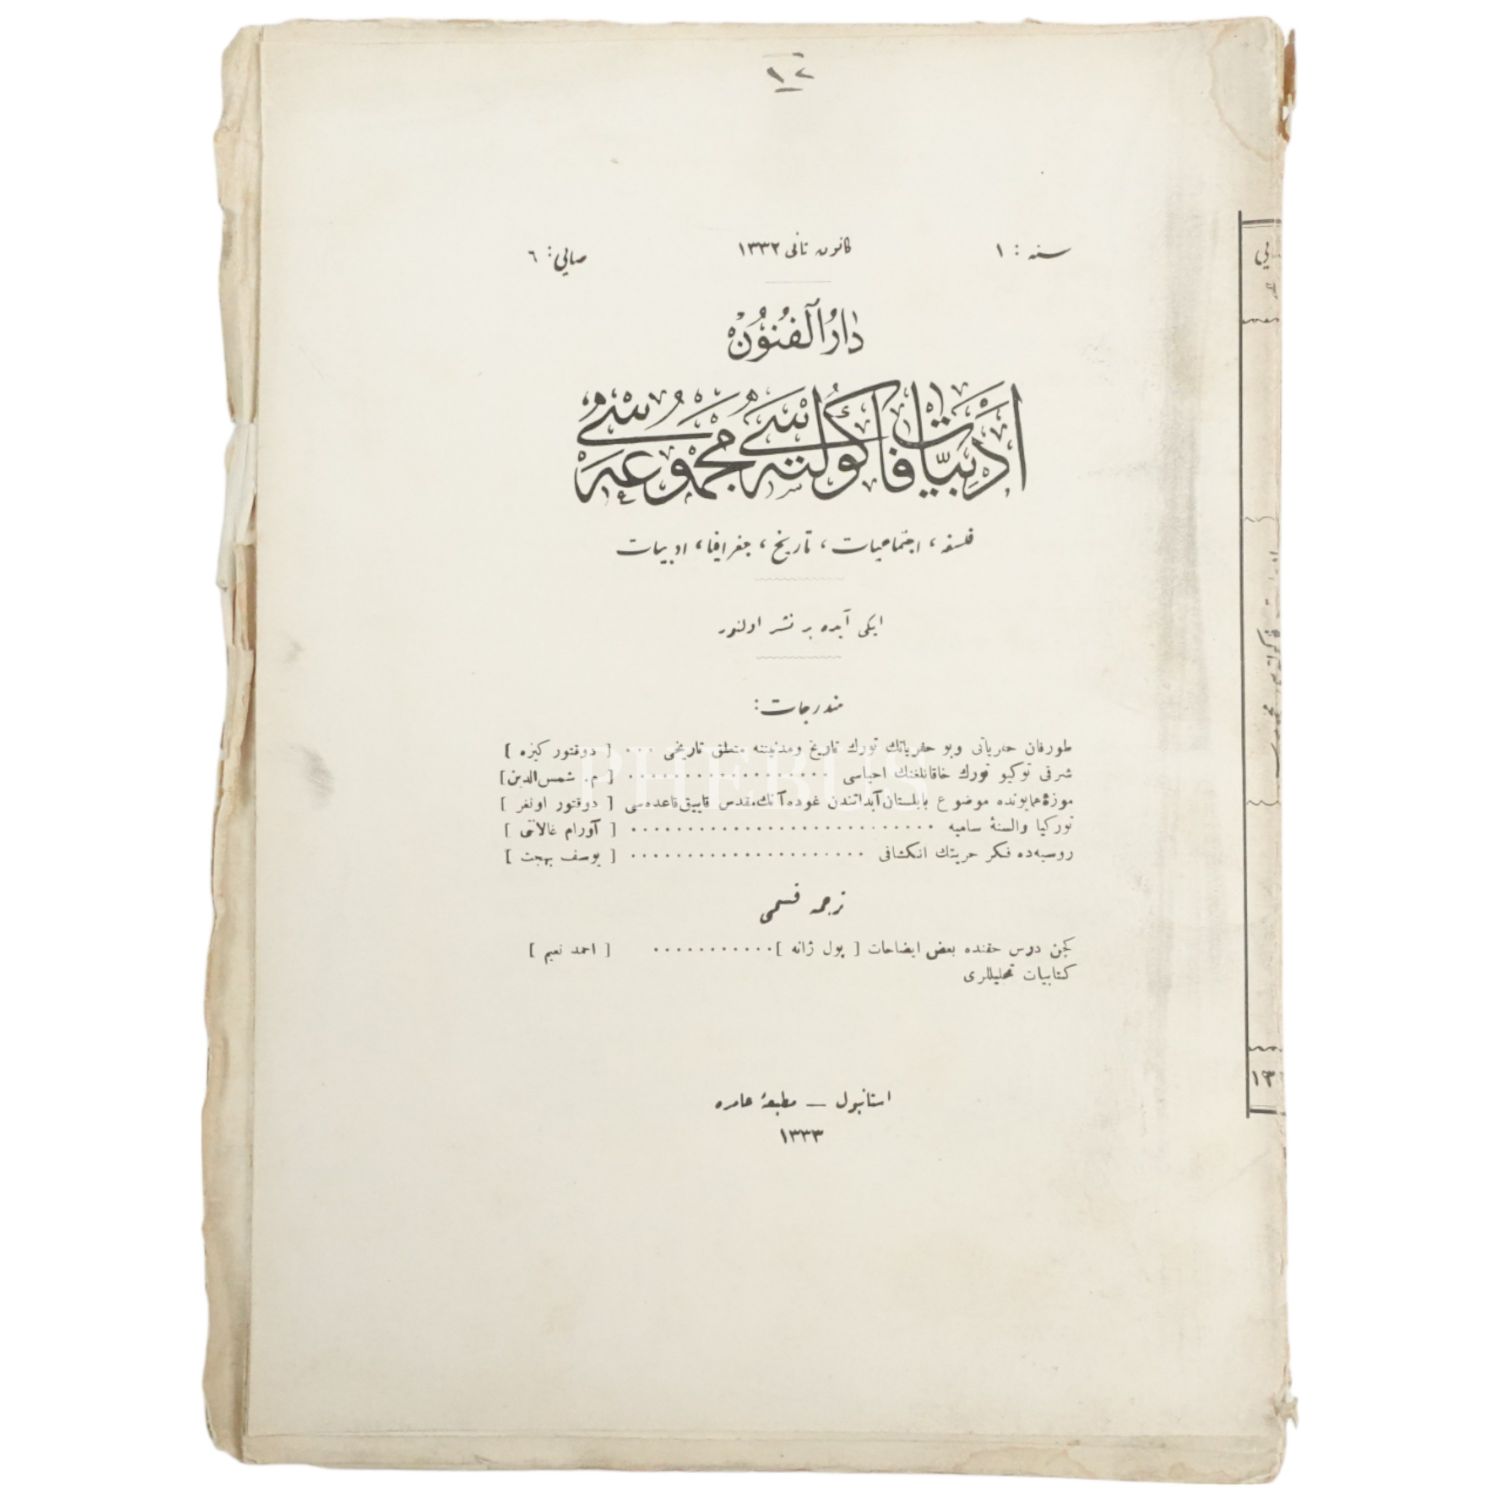 ١٢
سنه : ١
كانون ثانى ١٣٣٢
صايى : ٦
دَارُالْفُنُونْ
اَدَبِيَّات فَاكُولْتَه‌سِى مَجْمُوعَه‌سِى
فلسفه ، اجتماعيات ، تاريخ ، جغرافيا ، ادبيات
ايكى آيده بر نشر اولنور
مندرجات :
طورفان حفرياتى وبو حفرياتك تورك تاريخ ومدنيتنه متعلق تاريخى ٠٠٠٠ [ دوقتور كيزه ]
شرقى توكيو تورك خاقانلغنك احياسى ٠٠٠٠٠٠٠٠٠٠٠٠٠٠٠٠٠٠ [ م. شمس‌الدين ]
موزۀ همايونده موضوع بابلستان آبداتندن غوده‌آنك مقدس قابيق قاعده‌سى [ دوقتور اونغر ]
توركيا والسنۀ ساميه ٠٠٠٠٠٠٠٠٠٠٠٠٠٠٠٠٠٠٠٠٠٠٠٠٠٠٠ [ آورام غالانتى ]
روسيه‌ده فكر حريتك انكشافى ٠٠٠٠٠٠٠٠٠٠٠٠٠٠٠٠٠٠٠٠٠ [ يوسف بهجت ]
ترجمه قسمى
كچن درس حقنده بعض ايضاحات [ پول ژانه ] ٠٠٠٠٠٠٠٠٠٠٠ [ احمد نعيم ]
كتابيات تحليللرى
استانبول — مطبعۀ عامره
١٣٣٣
PHEBUS